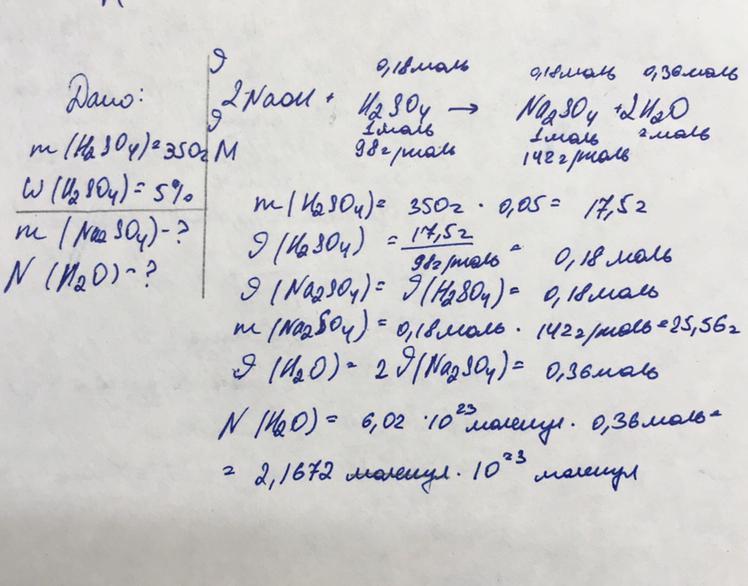 Дано:
m(H₂SO₄)=350г
W(H₂SO₄)=5%
m(Na₂SO₄)-?
N(H₂O)-?
ϑ 0,18моль 0,18моль 0,36моль
2NaOH + H₂SO₄ → Na₂SO₄ + 2H₂O
ϑ 1моль 1моль 2моль
M 98г/моль 142г/моль
m(H₂SO₄)= 350г · 0,05= 17,5г
ϑ(H₂SO₄) = 17,5г / 98г/моль = 0,18моль
ϑ(Na₂SO₄)= ϑ(H₂SO₄)= 0,18моль
m(Na₂SO₄)=0,18моль · 142г/моль=25,56г
ϑ(H₂O)= 2ϑ(Na₂SO₄)= 0,36моль
N(H₂O)= 6,02 · 10²³ молекул · 0,36моль=
= 2,1672 молекул · 10²³ молекул